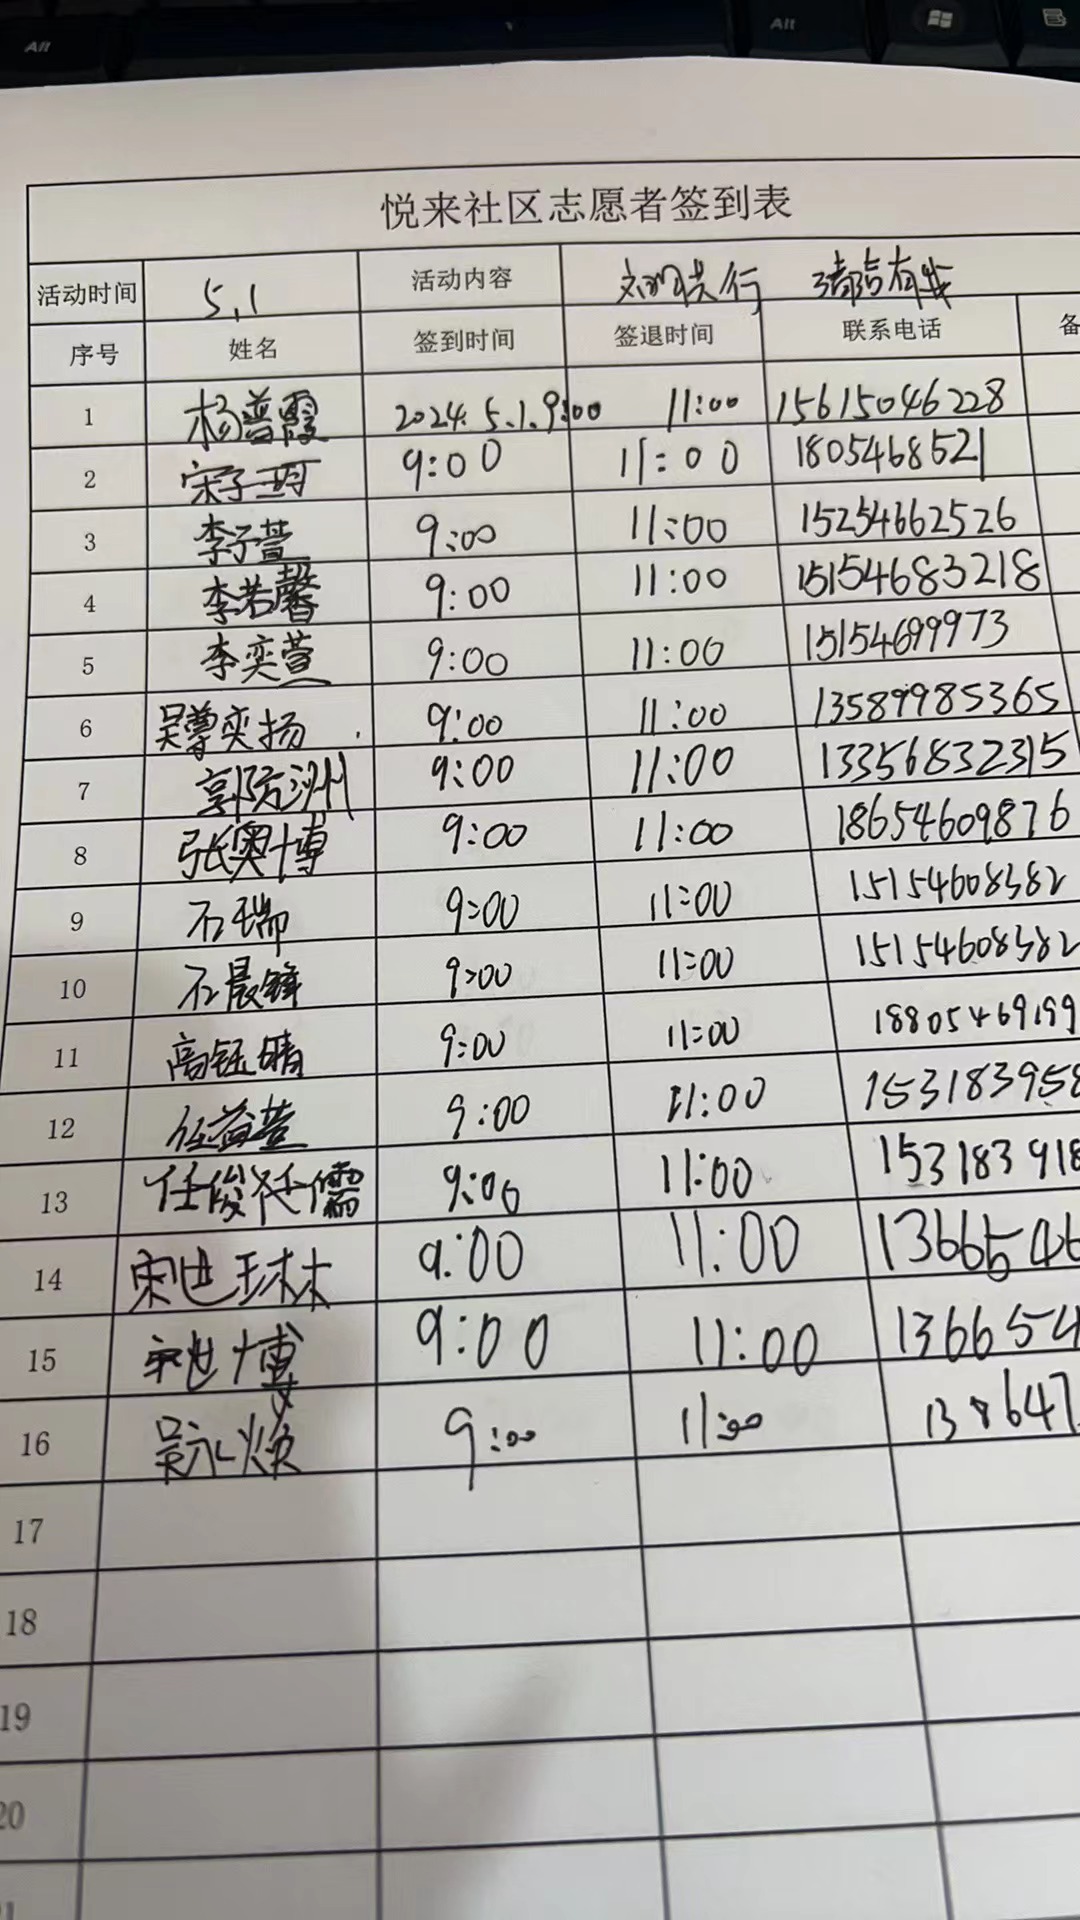 Alt Alt
悦来社区志愿者签到表
活动时间 5.1 活动内容 文明共行
序号 姓名 签到时间 签退时间 联系电话 备
1 杨普霞 2024.5.1.9:00 11:00 15615046228
2 宋子玥 9:00 11:00 1805468521
3 李子萱 9:00 11:00 15254662526
4 李若馨 9:00 11:00 15154683218
5 李奕萱 9:00 11:00 15154699973
6 吴尊奕扬 9:00 11:00 13589985365
7 郭防洲 9:00 11:00 13356832315
8 张奥博 9:00 11:00 18654609876
9 石瑞 9:00 11:00 15154608382
10 石晨锋 9:00 11:00 15154608382
11 高钰晴 9:00 11:00 18805469199
12 任益萱 9:00 11:00 153183958
13 任俊廷儒 9:00 11:00 153183918
14 宋世琳 9:00 11:00 1366546
15 宋世博 9:00 11:00 136654
16 吴永焕 9:00 11:00 138647
17
18
19
20